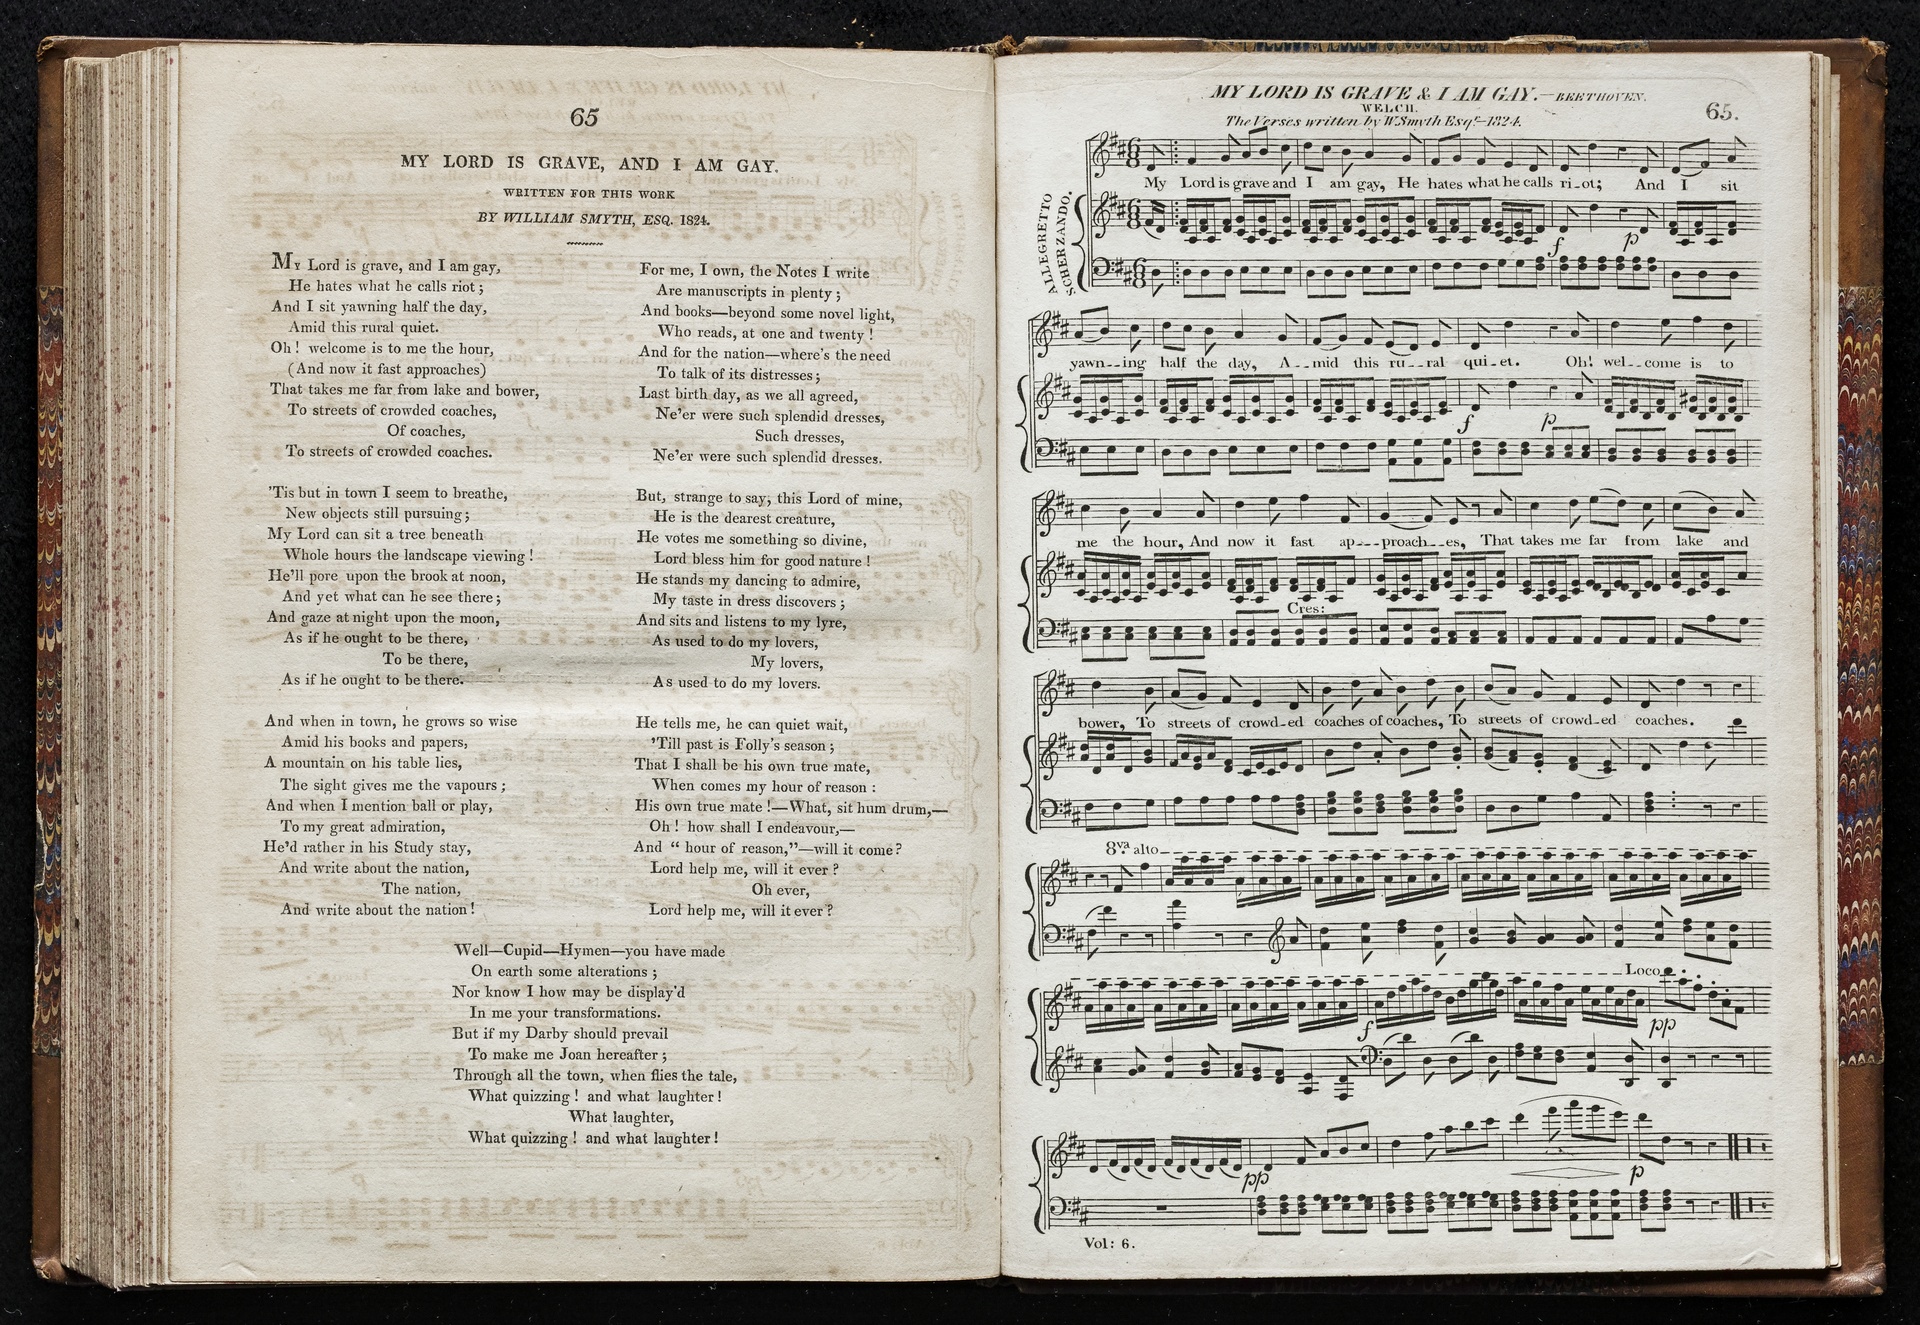 65
MY LORD IS GRAVE, AND I AM GAY.
WRITTEN FOR THIS WORK
BY WILLIAM SMYTH, ESQ. 1824.
My Lord is grave, and I am gay,
He hates what he calls riot;
And I sit yawning half the day,
Amid this rural quiet.
Oh! welcome is to me the hour,
(And now it fast approaches)
That takes me far from lake and bower,
To streets of crowded coaches,
Of coaches,
To streets of crowded coaches.
'Tis but in town I seem to breathe,
New objects still pursuing;
My Lord can sit a tree beneath
Whole hours the landscape viewing!
He'll pore upon the brook at noon,
And yet what can he see there;
And gaze at night upon the moon,
As if he ought to be there,
To be there,
As if he ought to be there.
And when in town, he grows so wise
Amid his books and papers,
A mountain on his table lies,
The sight gives me the vapours;
And when I mention ball or play,
To my great admiration,
He'd rather in his Study stay,
And write about the nation,
The nation,
And write about the nation!
For me, I own, the Notes I write
Are manuscripts in plenty;
And books—beyond some novel light,
Who reads, at one and twenty!
And for the nation—where's the need
To talk of its distresses;
Last birth day, as we all agreed,
Ne'er were such splendid dresses,
Such dresses,
Ne'er were such splendid dresses.
But, strange to say, this Lord of mine,
He is the dearest creature,
He votes me something so divine,
Lord bless him for good nature!
He stands my dancing to admire,
My taste in dress discovers;
And sits and listens to my lyre,
As used to do my lovers,
My lovers,
As used to do my lovers.
He tells me, he can quiet wait,
'Till past is Folly's season;
That I shall be his own true mate,
When comes my hour of reason:
His own true mate!—What, sit hum drum,—
Oh! how shall I endeavour,—
And “ hour of reason,”—will it come?
Lord help me, will it ever?
Oh ever,
Lord help me, will it ever?
Well—Cupid—Hymen—you have made
On earth some alterations;
Nor know I how may be display'd
In me your transformations.
But if my Darby should prevail
To make me Joan hereafter;
Through all the town, when flies the tale,
What quizzing! and what laughter!
What laughter,
What quizzing! and what laughter!
MY LORD IS GRAVE & I AM GAY.—BEETHOVEN.
WELCH.
65.
The Verses written by W. Smyth Esqr.—1824.
ALLEGRETTO
SCHERZANDO.
My Lord is grave and I am gay, He hates what he calls ri-ot; And I sit
f p
yawn--ing half the day, A--mid this ru--ral qui-et. Oh! wel--come is to
f p
me the hour, And now it fast ap---proach--es, That takes me far from lake and
Cres:
bower, To streets of crowd-ed coaches of coaches, To streets of crowd-ed coaches.
8va alto
Loco
f pp
pp p
Vol: 6.